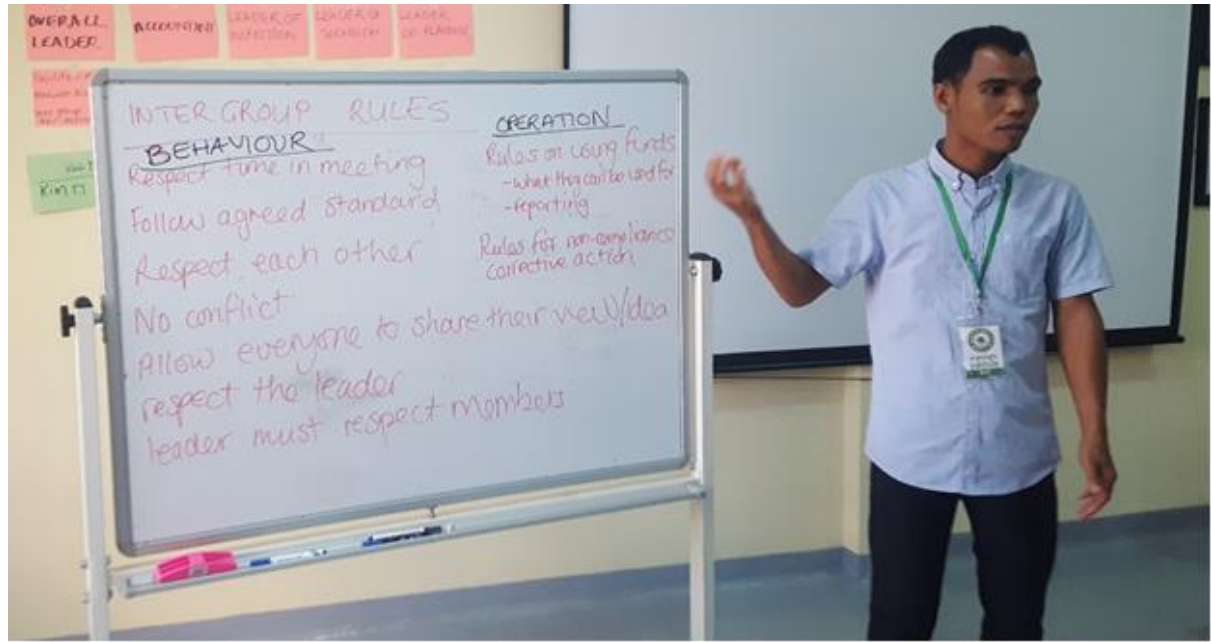 OVERALL
LEADER
ACCOUNTANT
LEADER OF
LEADER OF
LEADER
INTER GROUP RULES
BEHAVIOUR
Respect time in meeting
Follow agreed standard
Respect each other
No conflict
Allow everyone to share their view/idea
respect the leader
leader must respect members
OPERATION
Rules on using funds
- what they can be used for
- reporting
Rules for non-compliance
corrective action